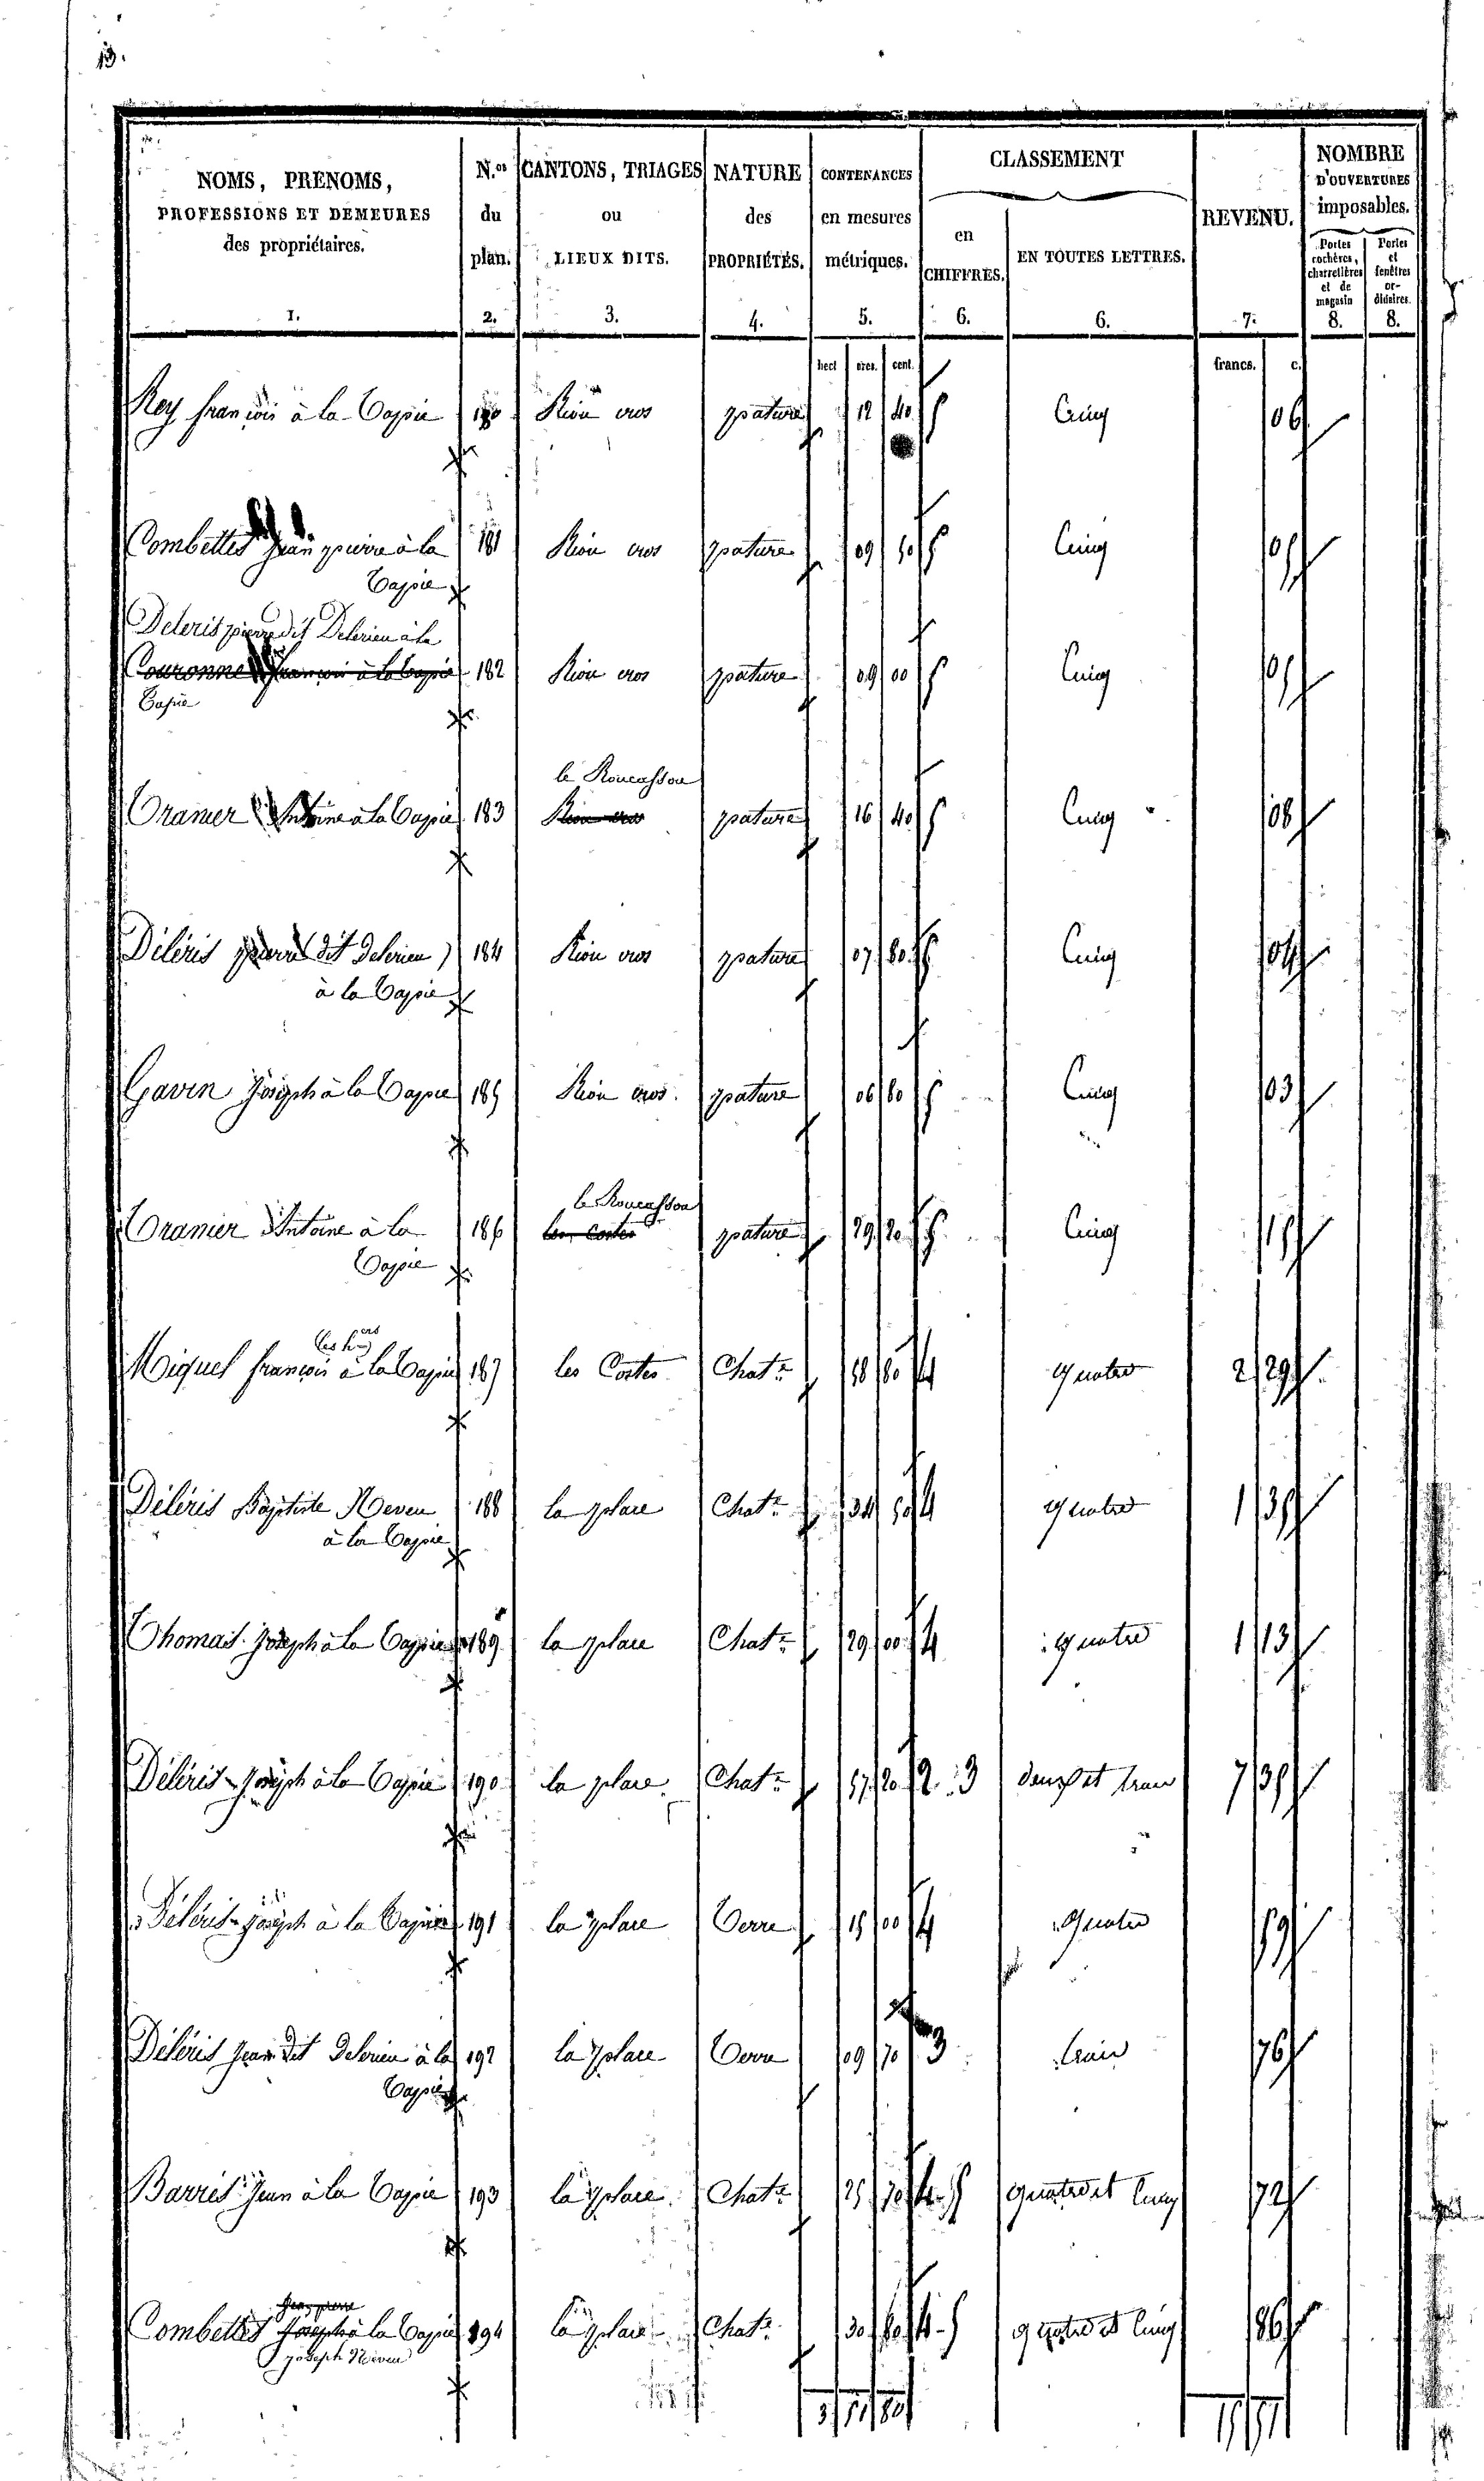 13.
NOMS, PRENOMS, PROFESSIONS ET DEMEURES des propriétaires. 1.
N.os du plan. 2.
CANTONS, TRIAGES ou LIEUX DITS. 3.
NATURE des PROPRIÉTÉS. 4.
CONTENANCES en mesures métriques. 5.
CLASSEMENT
en CHIFFRES. 6.
EN TOUTES LETTRES. 6.
REVENU. 7.
NOMBRE D'OUVERTURES imposables.
Portes cochères, charretières et de magasin 8.
Portes et fenêtres ordinaires. 8.
hect ares. cent. francs. c.
Rey françois à la Capie 180 Riou cros pature 12 40 5 Cinq 06
Combettes Jean pierre à la 181 Riou cros pature 09 50 5 Cinq 05
Capie
Deleris pierre dit Delerieu à la
Couronne françois à la Capie 182 Riou cros pature 09 00 5 Cinq 05
Capie
le Roucassou
Cranier Antoine à la Capie 183 Riou cros pature 16 40 5 Cinq 08
Déléris pierre dit Delerieu 184 Riou cros pature 07 80 5 Cinq 04
à la Capie
Gavin Joseph à la Capie 185 Riou cros pature 06 60 5 Cinq 03
le Roucassou
Cranier Antoine à la 186 les Costes pature 29 20 5 Cinq 15
Capie
les hers
Miquel françois à la Capie 187 les Costes Chat.re 58 80 4 Quatre 2 29
Déléris Baptiste Neveu 188 la place Chat.re 34 50 4 Quatre 1 35
à la Capie
Thomas Joseph à la Capie 189 la place Chat.re 29 00 4 Quatre 1 13
Déléris Joseph à la Capie 190 la place Chat.re 57 20 2. 3 deux et trois 7 35
Déléris Joseph à la Capie 191 la place Terre 15 00 4 Quatre 59
Déléris Jean dit Delerieu à la 192 la place Terre 09 70 3 trois 76
Capie
Barrés Jean à la Capie 193 la place Chat.re 25 70 4. 5 quatre et cinq 72
Jean pierre
Combettes Joseph à la Capie 194 la place Chat.re 30 80 4. 5 quatre et cinq 86
Joseph Neveu